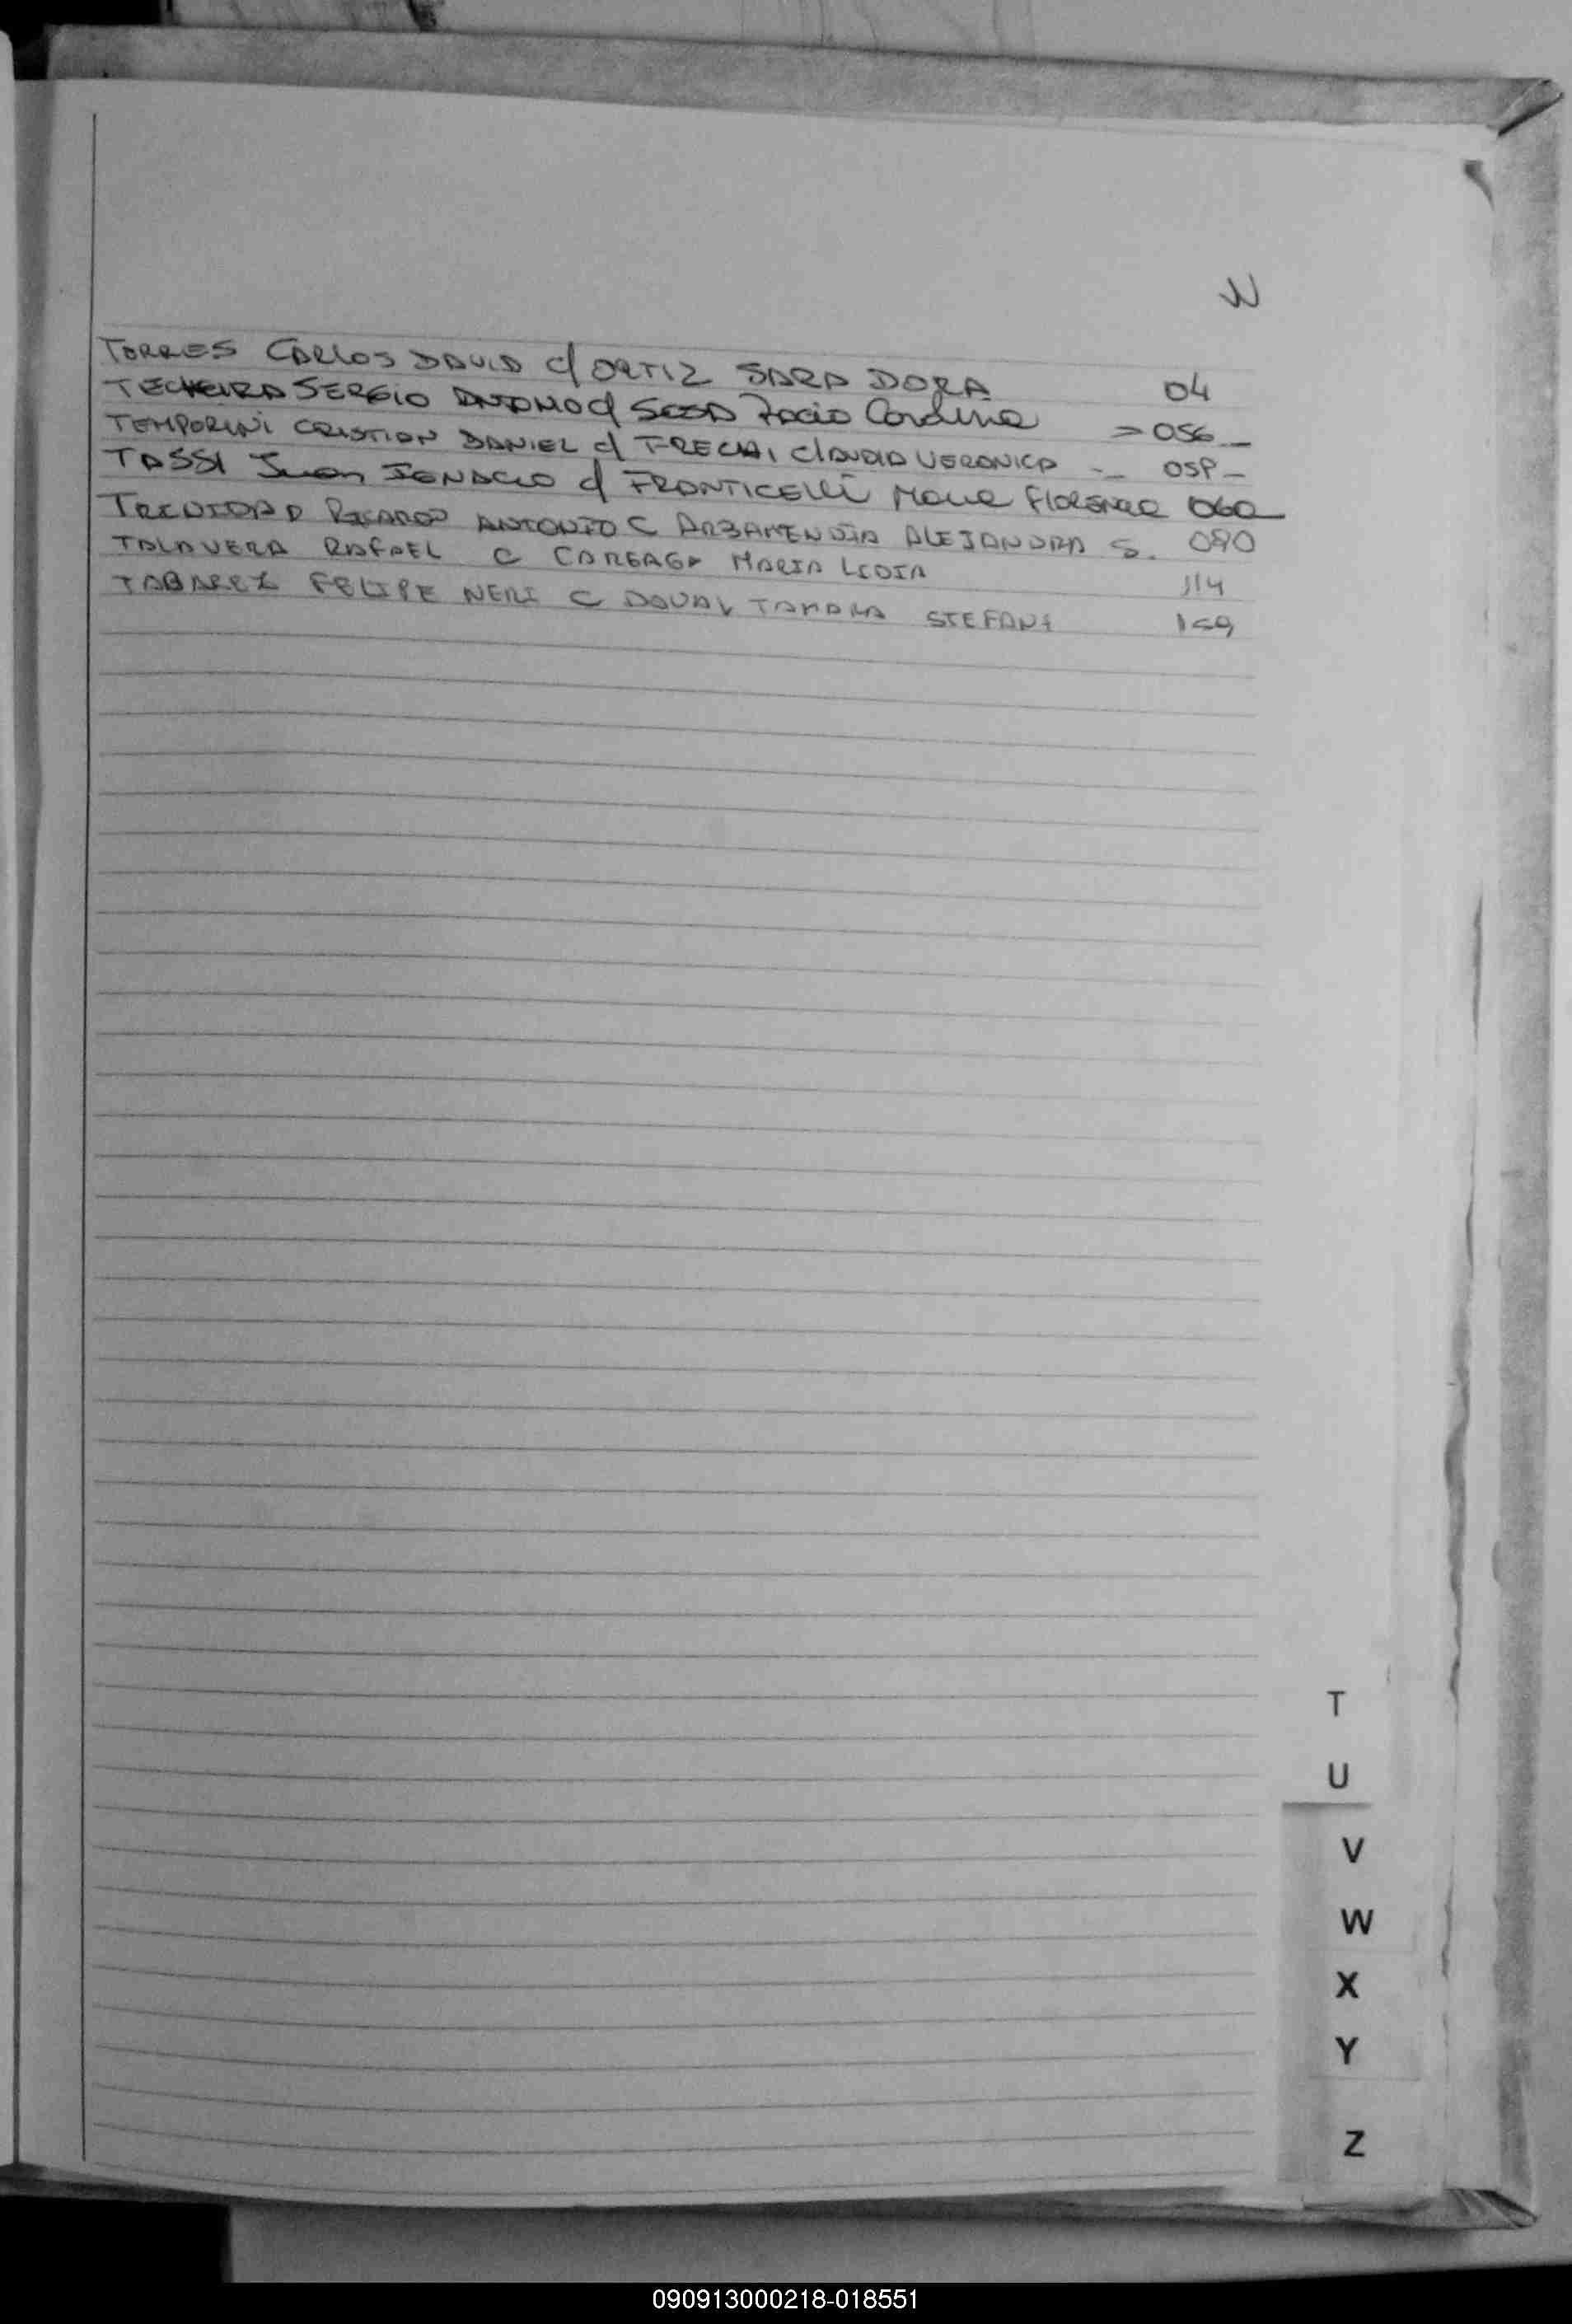 TORRES CARLOS DAVID c/ ORTIZ SARA DORA 04
TECHEIRA SERGIO ANTONIO c/ SOSA Rocio Carolina 056
TEMPORINI CRISTIAN DANIEL c/ CLAUDIA VERONICA
TASSI Juan IGNACIO c/ FRONTICELLI Maria FLORENCIA 060
TRINIDAD RICARDO ANTONIO C ARZAMENDIA ALEJANDRA S. 090
TALAVERA RAFAEL C CAREAGA MARIA LIDIA 114
FELIPE NERI C STEFANI
T
U
V
W
X
Y
Z
090913000218-018551